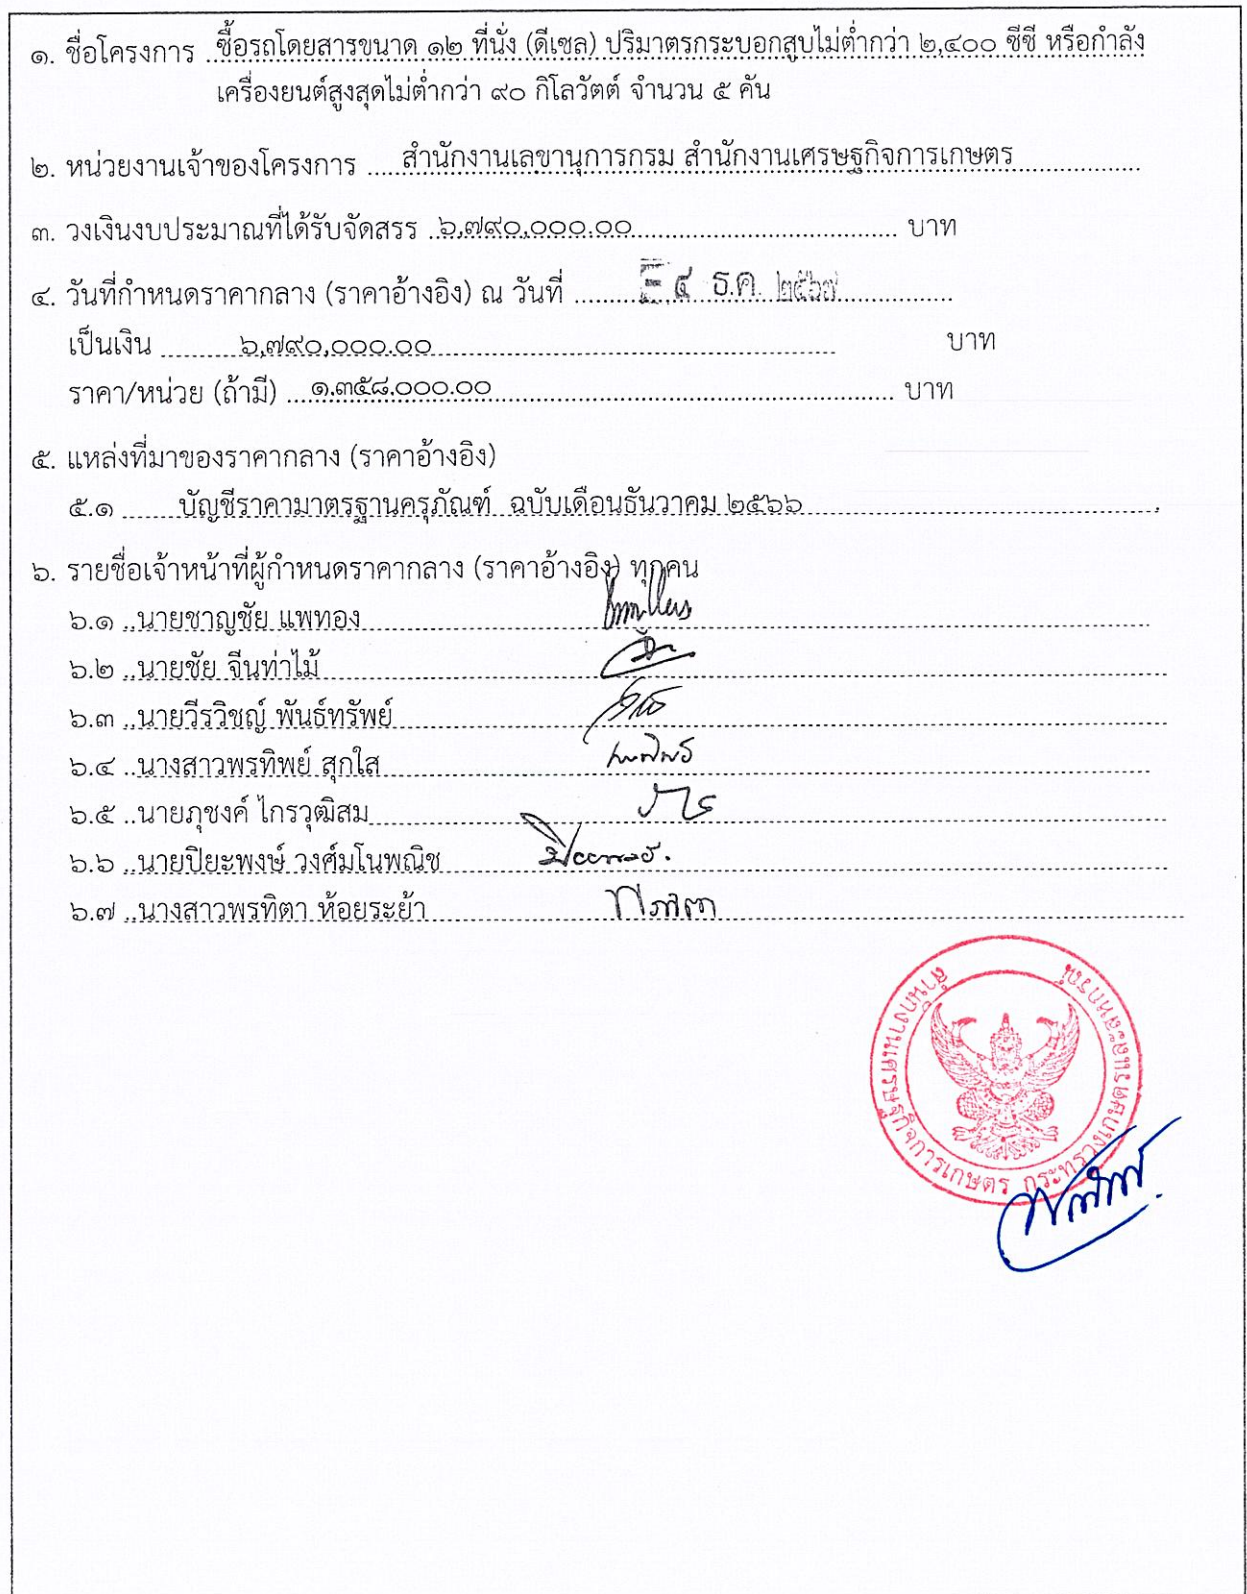 ๑. ชื่อโครงการ ..ซื้อรถโดยสารขนาด ๑๒ ที่นั่ง (ดีเซล) ปริมาตรกระบอกสูบไม่ต่ำกว่า ๒,๔๐๐ ซีซี หรือกำลัง
เครื่องยนต์สูงสุดไม่ต่ำกว่า ๙๐ กิโลวัตต์ จำนวน ๕ คัน
๒. หน่วยงานเจ้าของโครงการ .....สำนักงานเลขานุการกรม สำนักงานเศรษฐกิจการเกษตร....................
๓. วงเงินงบประมาณที่ได้รับจัดสรร ..๖,๗๙๐,๐๐๐.๐๐............................................ บาท
๔. วันที่กำหนดราคากลาง (ราคาอ้างอิง) ณ วันที่ .............๔ ธ.ค. ๒๕๖๗....................
เป็นเงิน .............๖,๗๙๐,๐๐๐.๐๐............................................................ บาท
ราคา/หน่วย (ถ้ามี) ....๑,๓๕๘,๐๐๐.๐๐............................................................ บาท
๕. แหล่งที่มาของราคากลาง (ราคาอ้างอิง)
๕.๑ .........บัญชีราคามาตรฐานครุภัณฑ์ ฉบับเดือนธันวาคม ๒๕๖๖............................................................
๖. รายชื่อเจ้าหน้าที่ผู้กำหนดราคากลาง (ราคาอ้างอิง) ทุกคน
๖.๑ ..นายชาญชัย แพทอง............................................................
๖.๒ ..นายชัย จีนท่าไม้............................................................
๖.๓ ..นายวีรวิชญ์ พันธ์ทรัพย์............................................................
๖.๔ ..นางสาวพรทิพย์ สุกใส............................................................
๖.๕ ..นายภุชงค์ ไกรวุฒิสม............................................................
๖.๖ ..นายปิยะพงษ์ วงศ์มโนพณิช............................................................
๖.๗ ..นางสาวพรทิตา ห้อยระย้า............................................................
สำนักงานเศรษฐกิจการเกษตร กระทรวงเกษตรและสหกรณ์